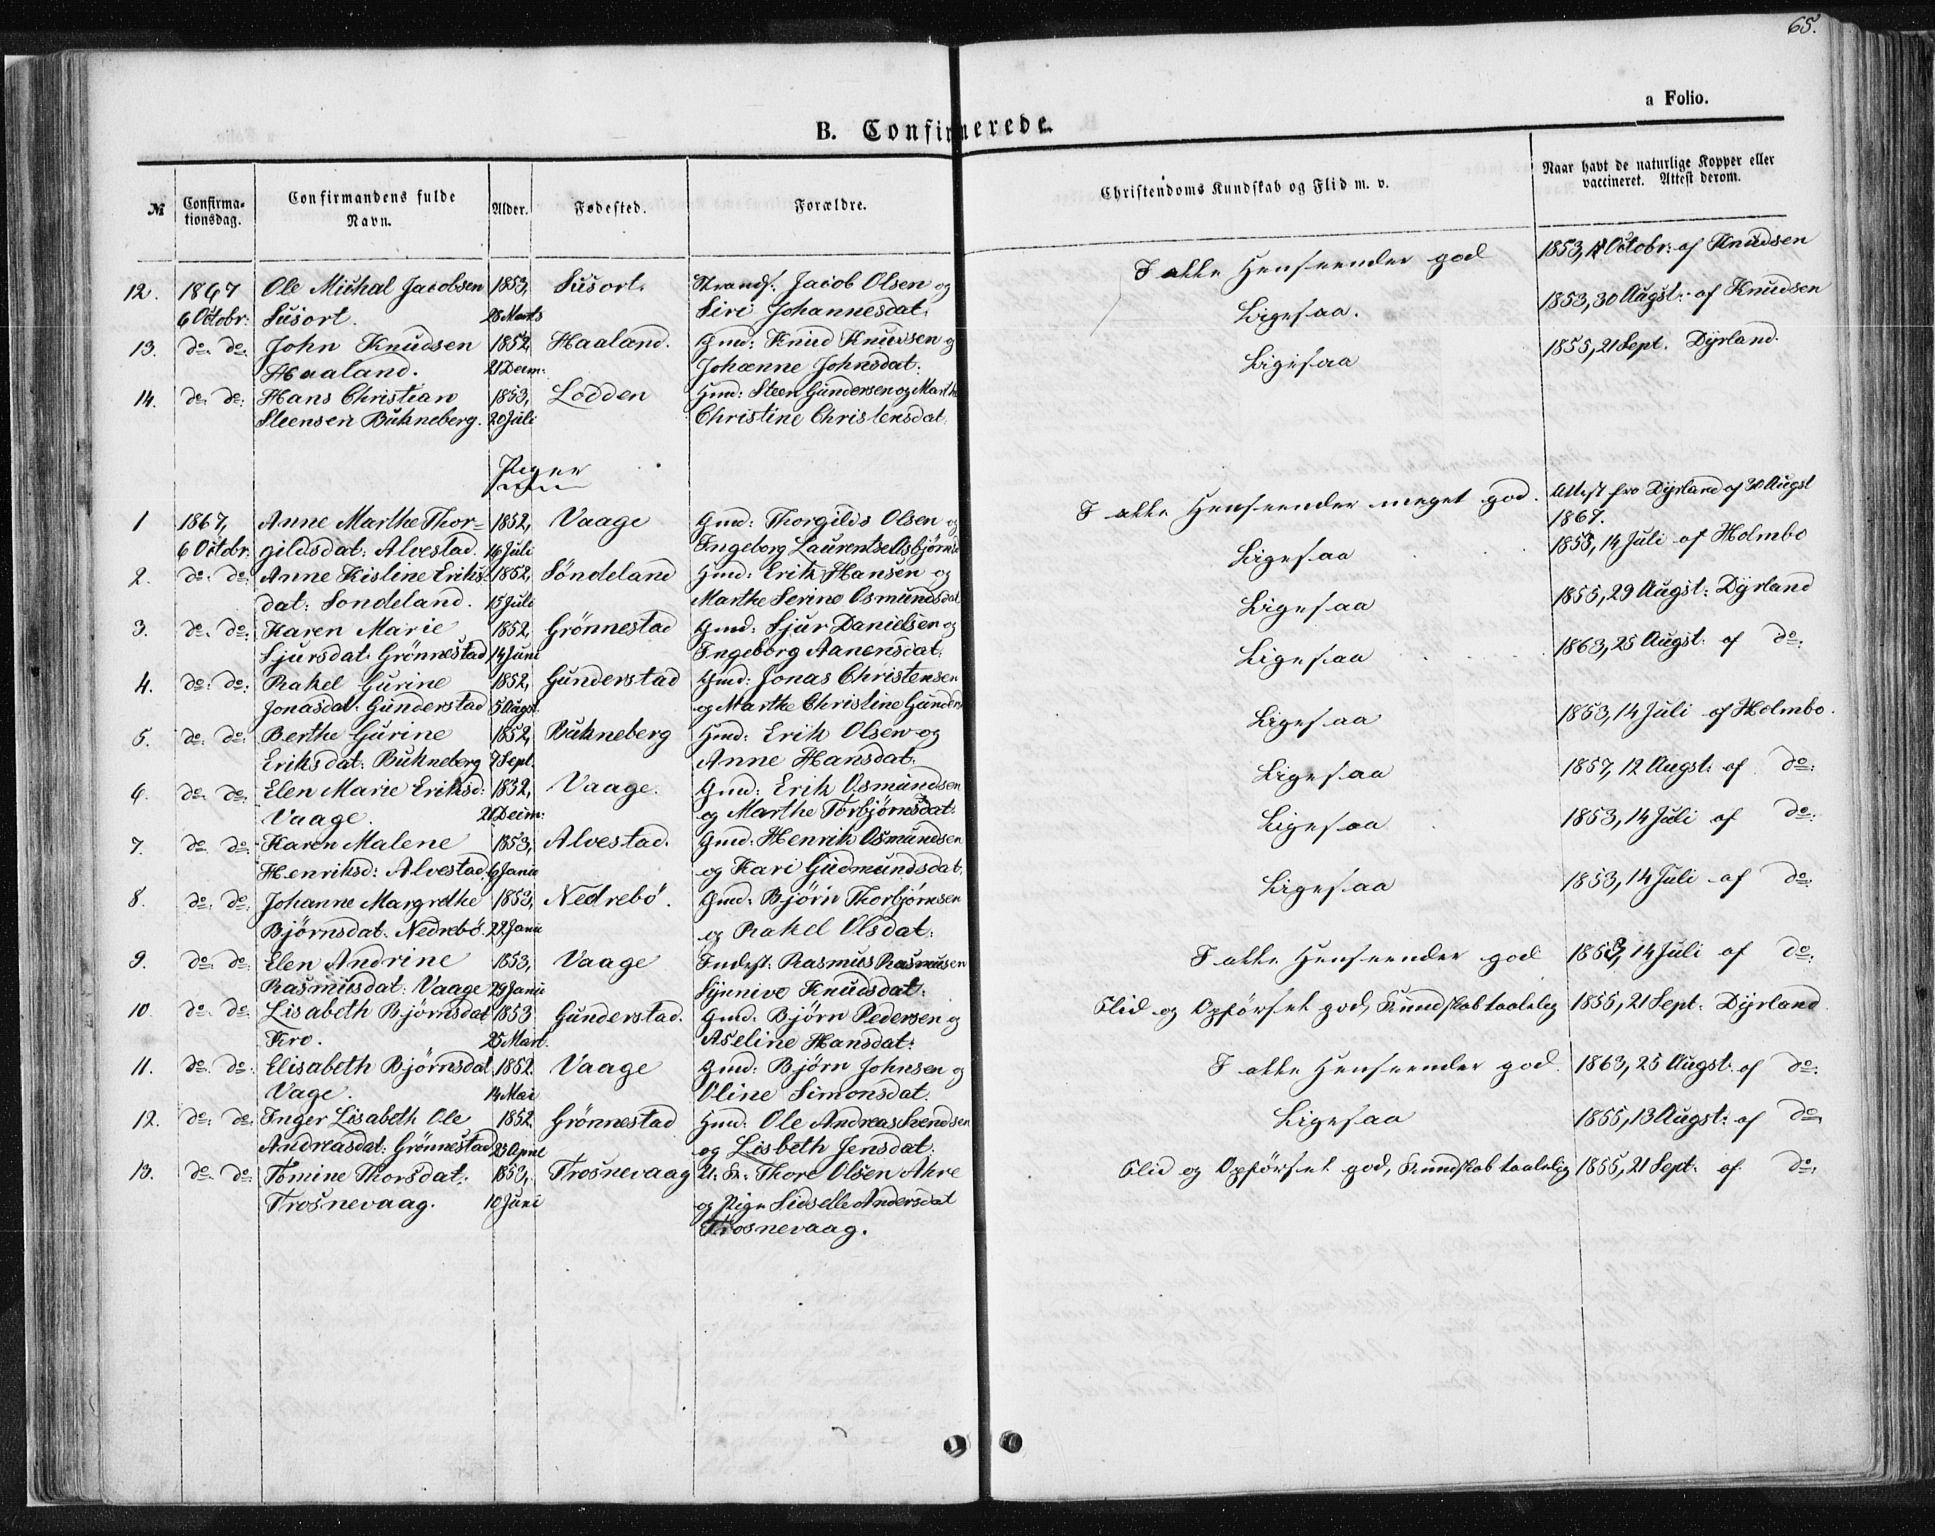 65.
a Folio.
B. Confirmerede.
№ Confirma-tionsdag. Confirmandens fulde Navn. Alder. Fødested. Forældre. Christendoms Kundskab og Flid m. v. Naar havt de naturlige Kopper eller vaccineret. Attest derom.
12. 1867 Ole Michal Jacobsen 1853, Susort. Strands. Jacob Olsen og I alle Henseender god 1853, Octobr: af Knudsen
6 Octobr: Susort. 28 Marts Siri Johannesdat.
13. do. do. John Knudsen 1852, Haaland. Gmd: Knud Knudsen og Ligesaa. 1853, 30 Augst: af Knudsen
Haaland. 21 Decm: Johanne Johnsdat:
14. do. do: Hans Christian 1853, Lodden Hmd: Steen Gundersen og Marthe Ligesaa 1855, 21 Sept. Dyrland.
Steensen Buhneberg. 20 Juli Christine Christensdat.
Piger
1 1867, Anne Marthe Thor= 1852, Vaage Gmd: Thorgilds Olsen og I alle Henseender meget god. Attest fra Dyrland af 30 Augst
6 Octobr. gildsdat: Alvestad. 16 Juli Ingeborg Laurentse 1867.
2. do: do: Anne Kistine Eriks- 1852, Söndeland Hmd: Erik Hansen og Ligesaa 1853, 14 Juli af Holmbo
dat: Sondeland. 15 Juli Marthe Serine Osmundsdat
3. do. do: Karen Marie 1852, Grönnestad Gmd: Sjur Danielsen og Ligesaa 1855, 29 Augst: Dyrland
Sjursdat: Grönnestad 14 Juni Ingeborg Aanensdat:
4. do: do: Rakel Gurine 1852, Gunderstad Gmd: Jonas Christensen Ligesaa 1863, 25 Augst: af do:
Jonasdat: Gunderstad 5 Augst. og Marthe Christine Gunders
5. do: do: Berthe Gurine 1852, Buhneberg Hmd: Erik Olsen og Ligesaa 1853, 14 Juli af Holmbo.
Eriksdat: Buhneberg 7 Sept. Anne Hansdat:
6. do. do: Elen Marie Eriksd: 1852, Vaage. Gmd: Erik Osmundsen Ligesaa 1857, 12 Augst: af do:
Vaage. 21 Decm: og Marthe Torbjørnsdat:
7. do. do: Karen Malene 1853, Alvestad. Gmd: Henrik Osmundsen Ligesaa 1853, 14 Juli af do:
Henriksd: Alvestad. 6 Janu og Kari Gudmundsdat.
8. do: do: Johanne Margrethe 1853, Nedrebö. Gmd: Björn Thorbjörnsen Ligesaa 1853, 14 Juli af do:
Björnsdat. Nedrebö 22 Janu og Rakel Olsdat:
9. do: do: Elen Andrine 1853, Vaage Inderst: Rasmus Rasmusen I alle Henseender god 1853, 14 Juli af do:
Rasmusdat: Vaage 29 Janu Synnive Knudsdat:
10. do: do: Lisabeth Björnsdat 1853 Gunderstad. Gmd: Björn Pedersen og Flid og Opførsel god, Kundskab taalelig 1855, 21 Sept: Dyrland
Kro. 25 Mart. Aseline Hansdat:
11. do: do: Elisabeth Björnsdat 1852. Vaage Gmd: Björn Johnsen og I alle Henseender god. 1863, 25 Augst. af do:
Vage. 14 Mai Oline Simonsdat.
12. do: do: Inger Lisabeth Ole 1852 Grönnestad Hmd: Ole Andreas Svendsen Ligesaa 1855, 13 Augst: af do
Andreasdat: Grönnestad 23 April og Lisbeth Jensdat:
13. do: do: Tomine Thorsdat: 1853, Trosnevaag U: K: Thore Olsen Ahre Flid og Opførsel god, Kundskab taalelig 1855, 21 Sept: af do:
Trosnevaag. 10 Juni og Pige Sidselle Andersdat
Trosnevaag.